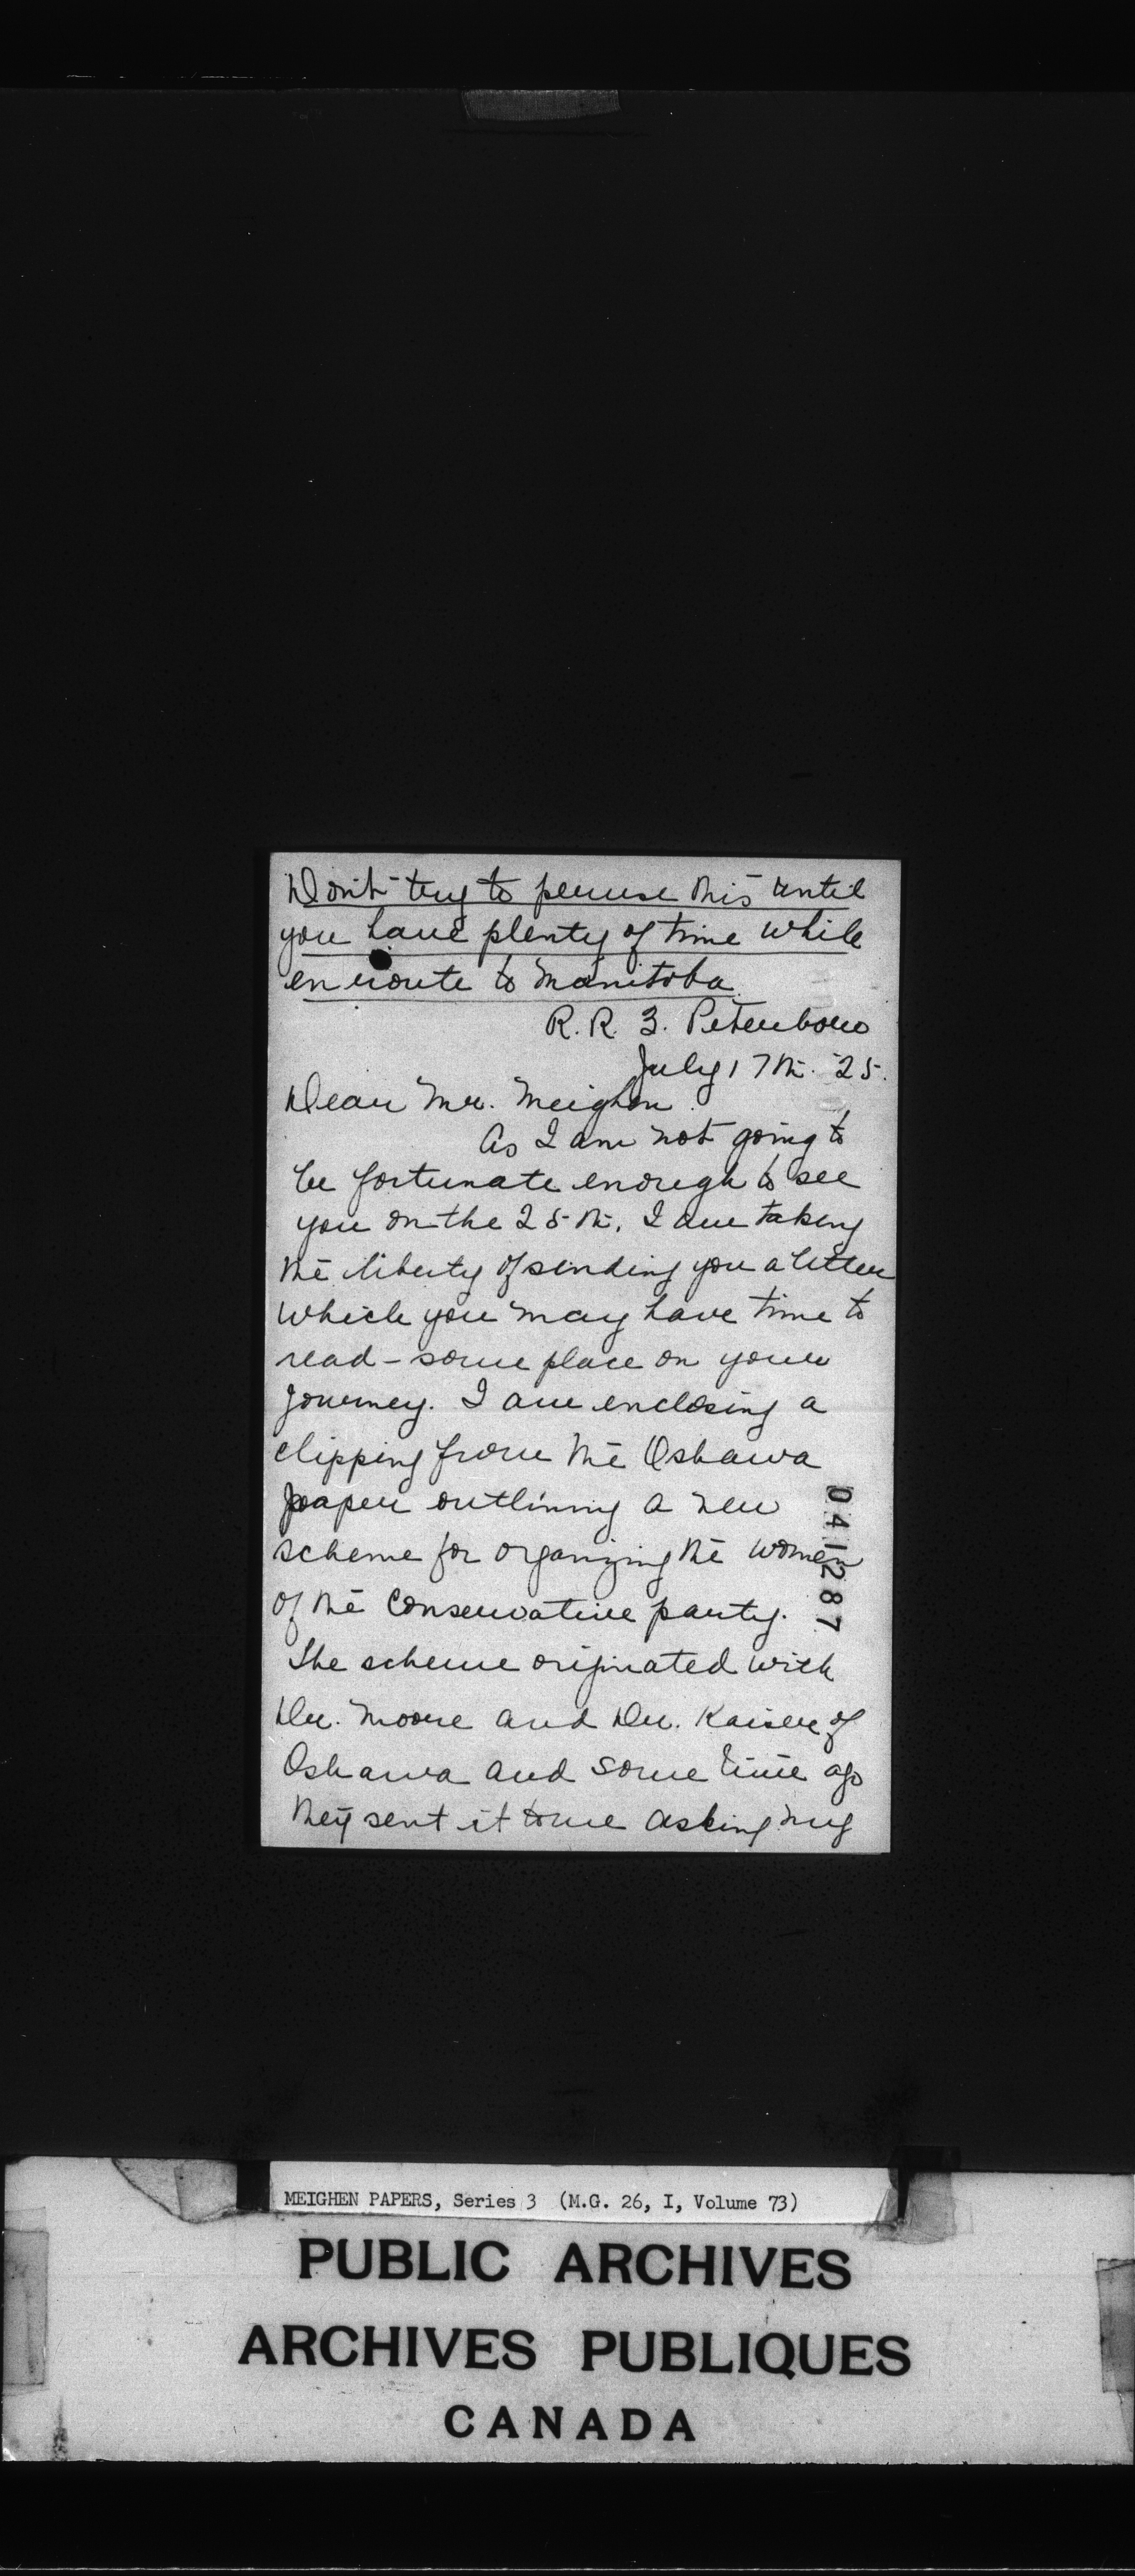 Don't try to peruse this until
you have plenty of time while
en route to Manitoba.
R. R. 3. Peterboro
July 17th. 25.
Dear Mr. Meighen.
As I am not going to
be fortunate enough to see
you on the 25th, I am taking
the liberty of sending you a letter
which you may have time to
read - some place on your
journey. I am enclosing a
clipping from the Oshawa
paper outlining a new
scheme for organizing the women
of the Conservative party.
The scheme originated with
Dr. Moore and Dr. Kaiser of
Oshawa and some time ago
they sent it to me asking my
041287
MEIGHEN PAPERS, Series 3 (M.G. 26, I, Volume 73)
PUBLIC ARCHIVES
ARCHIVES PUBLIQUES
CANADA